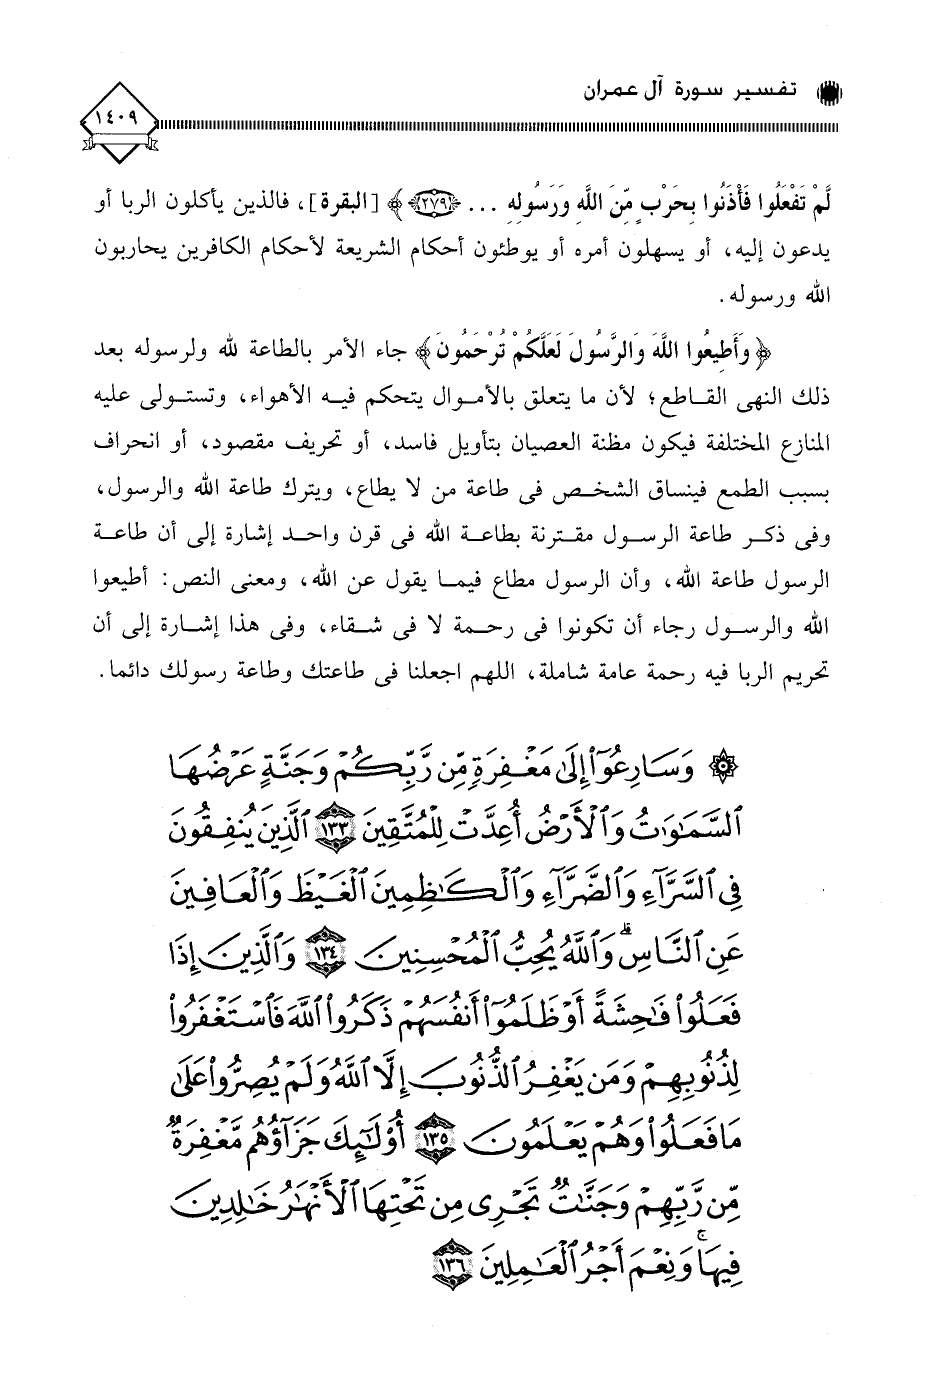 تفسير سورة آل عمران
١٤٠٩
لَّمْ تَفْعَلُوا فَأْذَنُوا بِحَرْبٍ مِّنَ اللَّهِ وَرَسُولِهِ ... ﴿٢٧٩﴾﴾ [البقرة]، فالذين يأكلون الربا أو
يدعون إليه، أو يسهلون أمره أو يوطئون أحكام الشريعة لأحكام الكافرين يحاربون
الله ورسوله.
﴿وَأَطِيعُوا اللَّهَ وَالرَّسُولَ لَعَلَّكُمْ تُرْحَمُونَ﴾ جاء الأمر بالطاعة لله ولرسوله بعد
ذلك النهى القاطع؛ لأن ما يتعلق بالأموال يتحكم فيه الأهواء، وتستولى عليه
المنازع المختلفة فيكون مظنة العصيان بتأويل فاسد، أو تحريف مقصود، أو انحراف
بسبب الطمع فينساق الشخص فى طاعة من لا يطاع، ويترك طاعة الله والرسول،
وفى ذكر طاعة الرسول مقترنة بطاعة الله فى قرن واحد إشارة إلى أن طاعة
الرسول طاعة الله، وأن الرسول مطاع فيما يقول عن الله، ومعنى النص: أطيعوا
الله والرسول رجاء أن تكونوا فى رحمة لا فى شقاء، وفى هذا إشارة إلى أن
تحريم الربا فيه رحمة عامة شاملة، اللهم اجعلنا فى طاعتك وطاعة رسولك دائما.
۞ وَسَارِعُوٓا۟ إِلَىٰ مَغْفِرَةٍ مِّن رَّبِّكُمْ وَجَنَّةٍ عَرْضُهَا
ٱلسَّمَٰوَٰتُ وَٱلْأَرْضُ أُعِدَّتْ لِلْمُتَّقِينَ ﴿١٣٣﴾ ٱلَّذِينَ يُنفِقُونَ
فِى ٱلسَّرَّآءِ وَٱلضَّرَّآءِ وَٱلْكَٰظِمِينَ ٱلْغَيْظَ وَٱلْعَافِينَ
عَنِ ٱلنَّاسِ ۗ وَٱللَّهُ يُحِبُّ ٱلْمُحْسِنِينَ ﴿١٣٤﴾ وَٱلَّذِينَ إِذَا
فَعَلُوا۟ فَٰحِشَةً أَوْ ظَلَمُوٓا۟ أَنفُسَهُمْ ذَكَرُوا۟ ٱللَّهَ فَٱسْتَغْفَرُوا۟
لِذُنُوبِهِمْ وَمَن يَغْفِرُ ٱلذُّنُوبَ إِلَّا ٱللَّهُ وَلَمْ يُصِرُّوا۟ عَلَىٰ
مَا فَعَلُوا۟ وَهُمْ يَعْلَمُونَ ﴿١٣٥﴾ أُو۟لَٰٓئِكَ جَزَآؤُهُم مَّغْفِرَةٌ
مِّن رَّبِّهِمْ وَجَنَّٰتٌ تَجْرِى مِن تَحْتِهَا ٱلْأَنْهَٰرُ خَٰلِدِينَ
فِيهَا ۚ وَنِعْمَ أَجْرُ ٱلْعَٰمِلِينَ ﴿١٣٦﴾